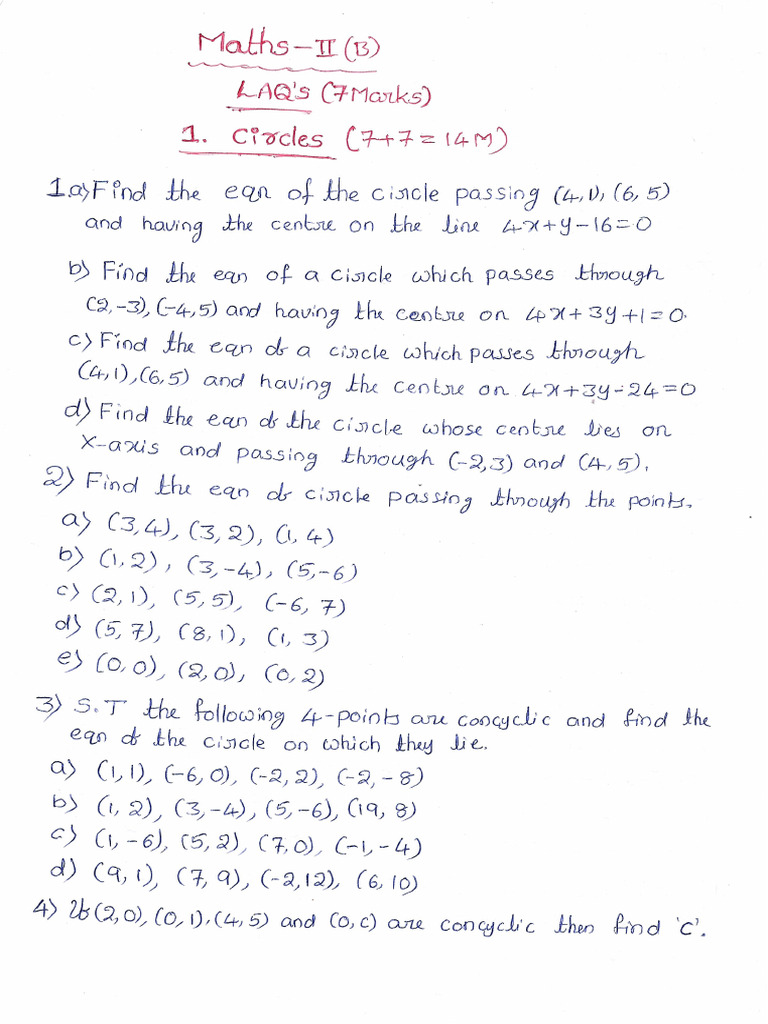 Maths-II (B)
LAQ's (7 Marks)
1. Circles (7+7=14M)
1.a) Find the eqn of the circle passing (4,1), (6,5)
and having the centre on the line 4x+y-16=0
b) Find the eqn of a circle which passes through
(2,-3), (-4,5) and having the centre on 4x+3y+1=0.
c) Find the eqn of a circle which passes through
(4,1), (6,5) and having the centre on 4x+3y-24=0
d) Find the eqn of the circle whose centre lies on
X-axis and passing through (-2,3) and (4,5).
2) Find the eqn of circle passing through the points.
a) (3,4), (3,2), (1,4)
b) (1,2), (3,-4), (5,-6)
c) (2,1), (5,5), (-6,7)
d) (5,7), (8,1), (1,3)
e) (0,0), (2,0), (0,2)
3) S.T the following 4-points are concyclic and find the
eqn of the circle on which they lie.
a) (1,1), (-6,0), (-2,2), (-2,-8)
b) (1,2), (3,-4), (5,-6), (19,8)
c) (1,-6), (5,2), (7,0), (-1,-4)
d) (9,1), (7,9), (-2,12), (6,10)
4) If (2,0), (0,1), (4,5) and (0,c) are concyclic then find 'c'.